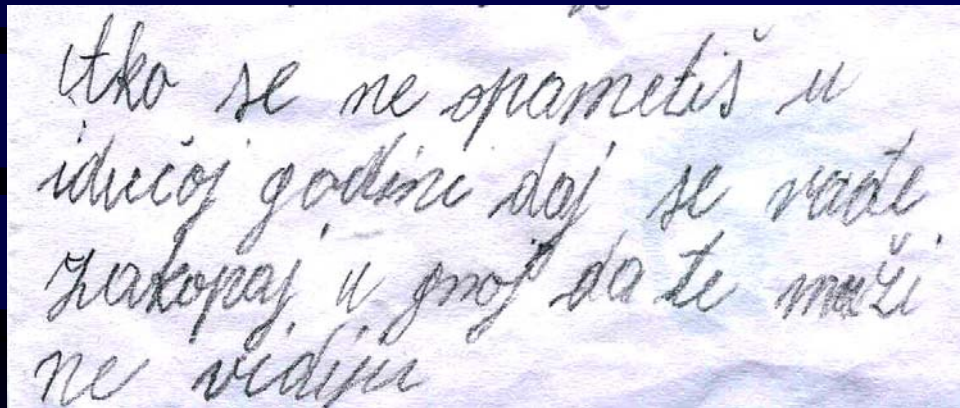 Ako se ne opametiš u
idućoj godini daj se rađe
zakopaj u gnoj da te muži
ne vidiju